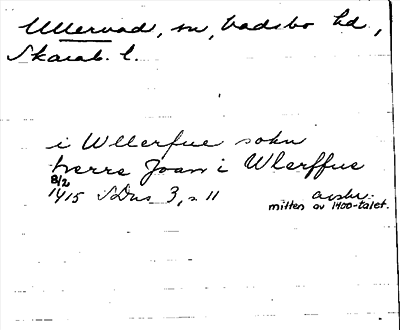 Ullervad, sn, Vadsbo hd,
Skarab. l.
i Wllerfue sokn
herre Joan i Wlerffue
8/2
1415 SDns 3, s 11 avskr.
mitten av 1400-talet.